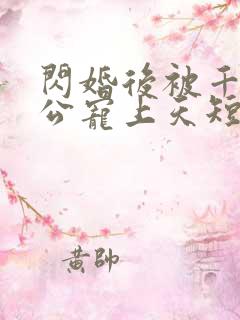 閃婚後被千
公寵上天短
黃帥